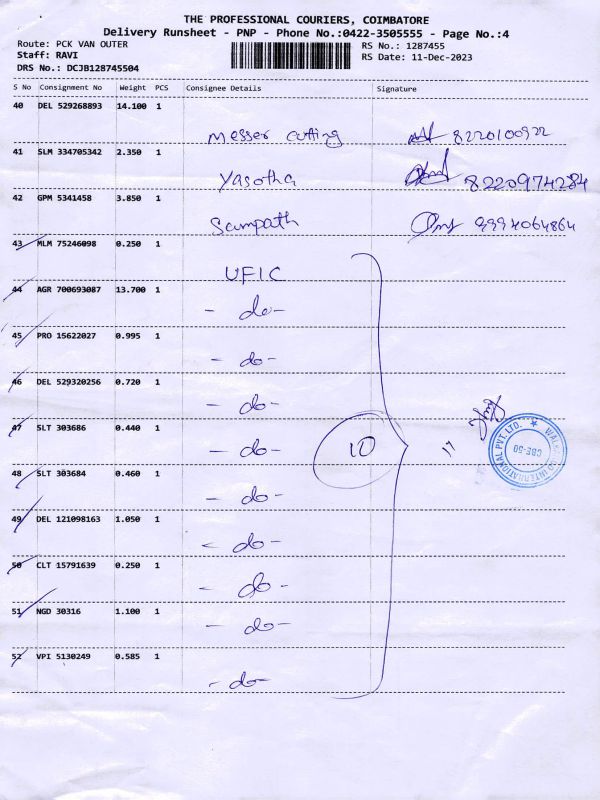 THE PROFESSIONAL COURIERS, COIMBATORE
Delivery Runsheet - PNP - Phone No.:0422-3505555 - Page No.:4
Route: PCK VAN OUTER
Staff: RAVI
DRS No.: DCJB128745504
RS No.: 1287455
RS Date: 11-Dec-2023
S No Consignment No Weight PCS Consignee Details Signature
40 DEL 529268893 14.100 1
Messer cutting 8220100922
41 SLM 334705342 2.350 1
Yasotha 8220974284
42 GPM 5341458 3.850 1
Sampath 9994064864
43 MLM 75246098 0.250 1
UFIC
44 AGR 700693087 13.700 1
- do -
45 PRO 15622027 0.995 1
- do -
46 DEL 529320256 0.720 1
- do -
47 SLT 303686 0.440 1
- do -
10
17
48 SLT 303684 0.460 1
- do -
49 DEL 121098163 1.050 1
- do -
50 CLT 15791639 0.250 1
- do -
51 NGD 30316 1.100 1
- do -
52 VPI 5130249 0.585 1
- do -
INTERNATIONAL PVT. LTD.
CBE-50